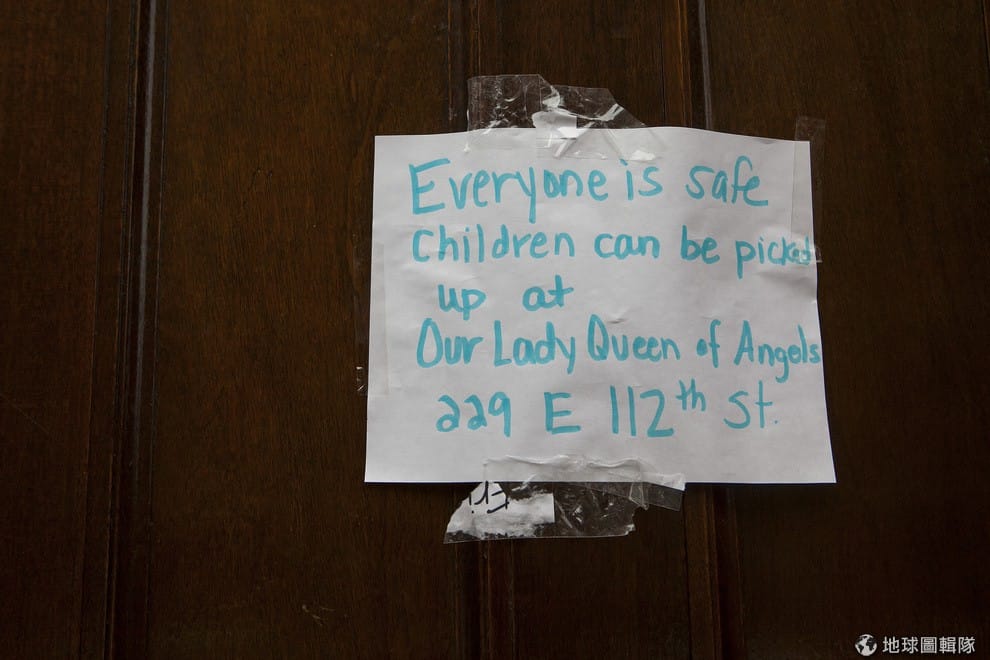 Everyone is safe
Children can be picked
up at
Our Lady Queen of Angels
229 E 112th St.
地球圖輯隊